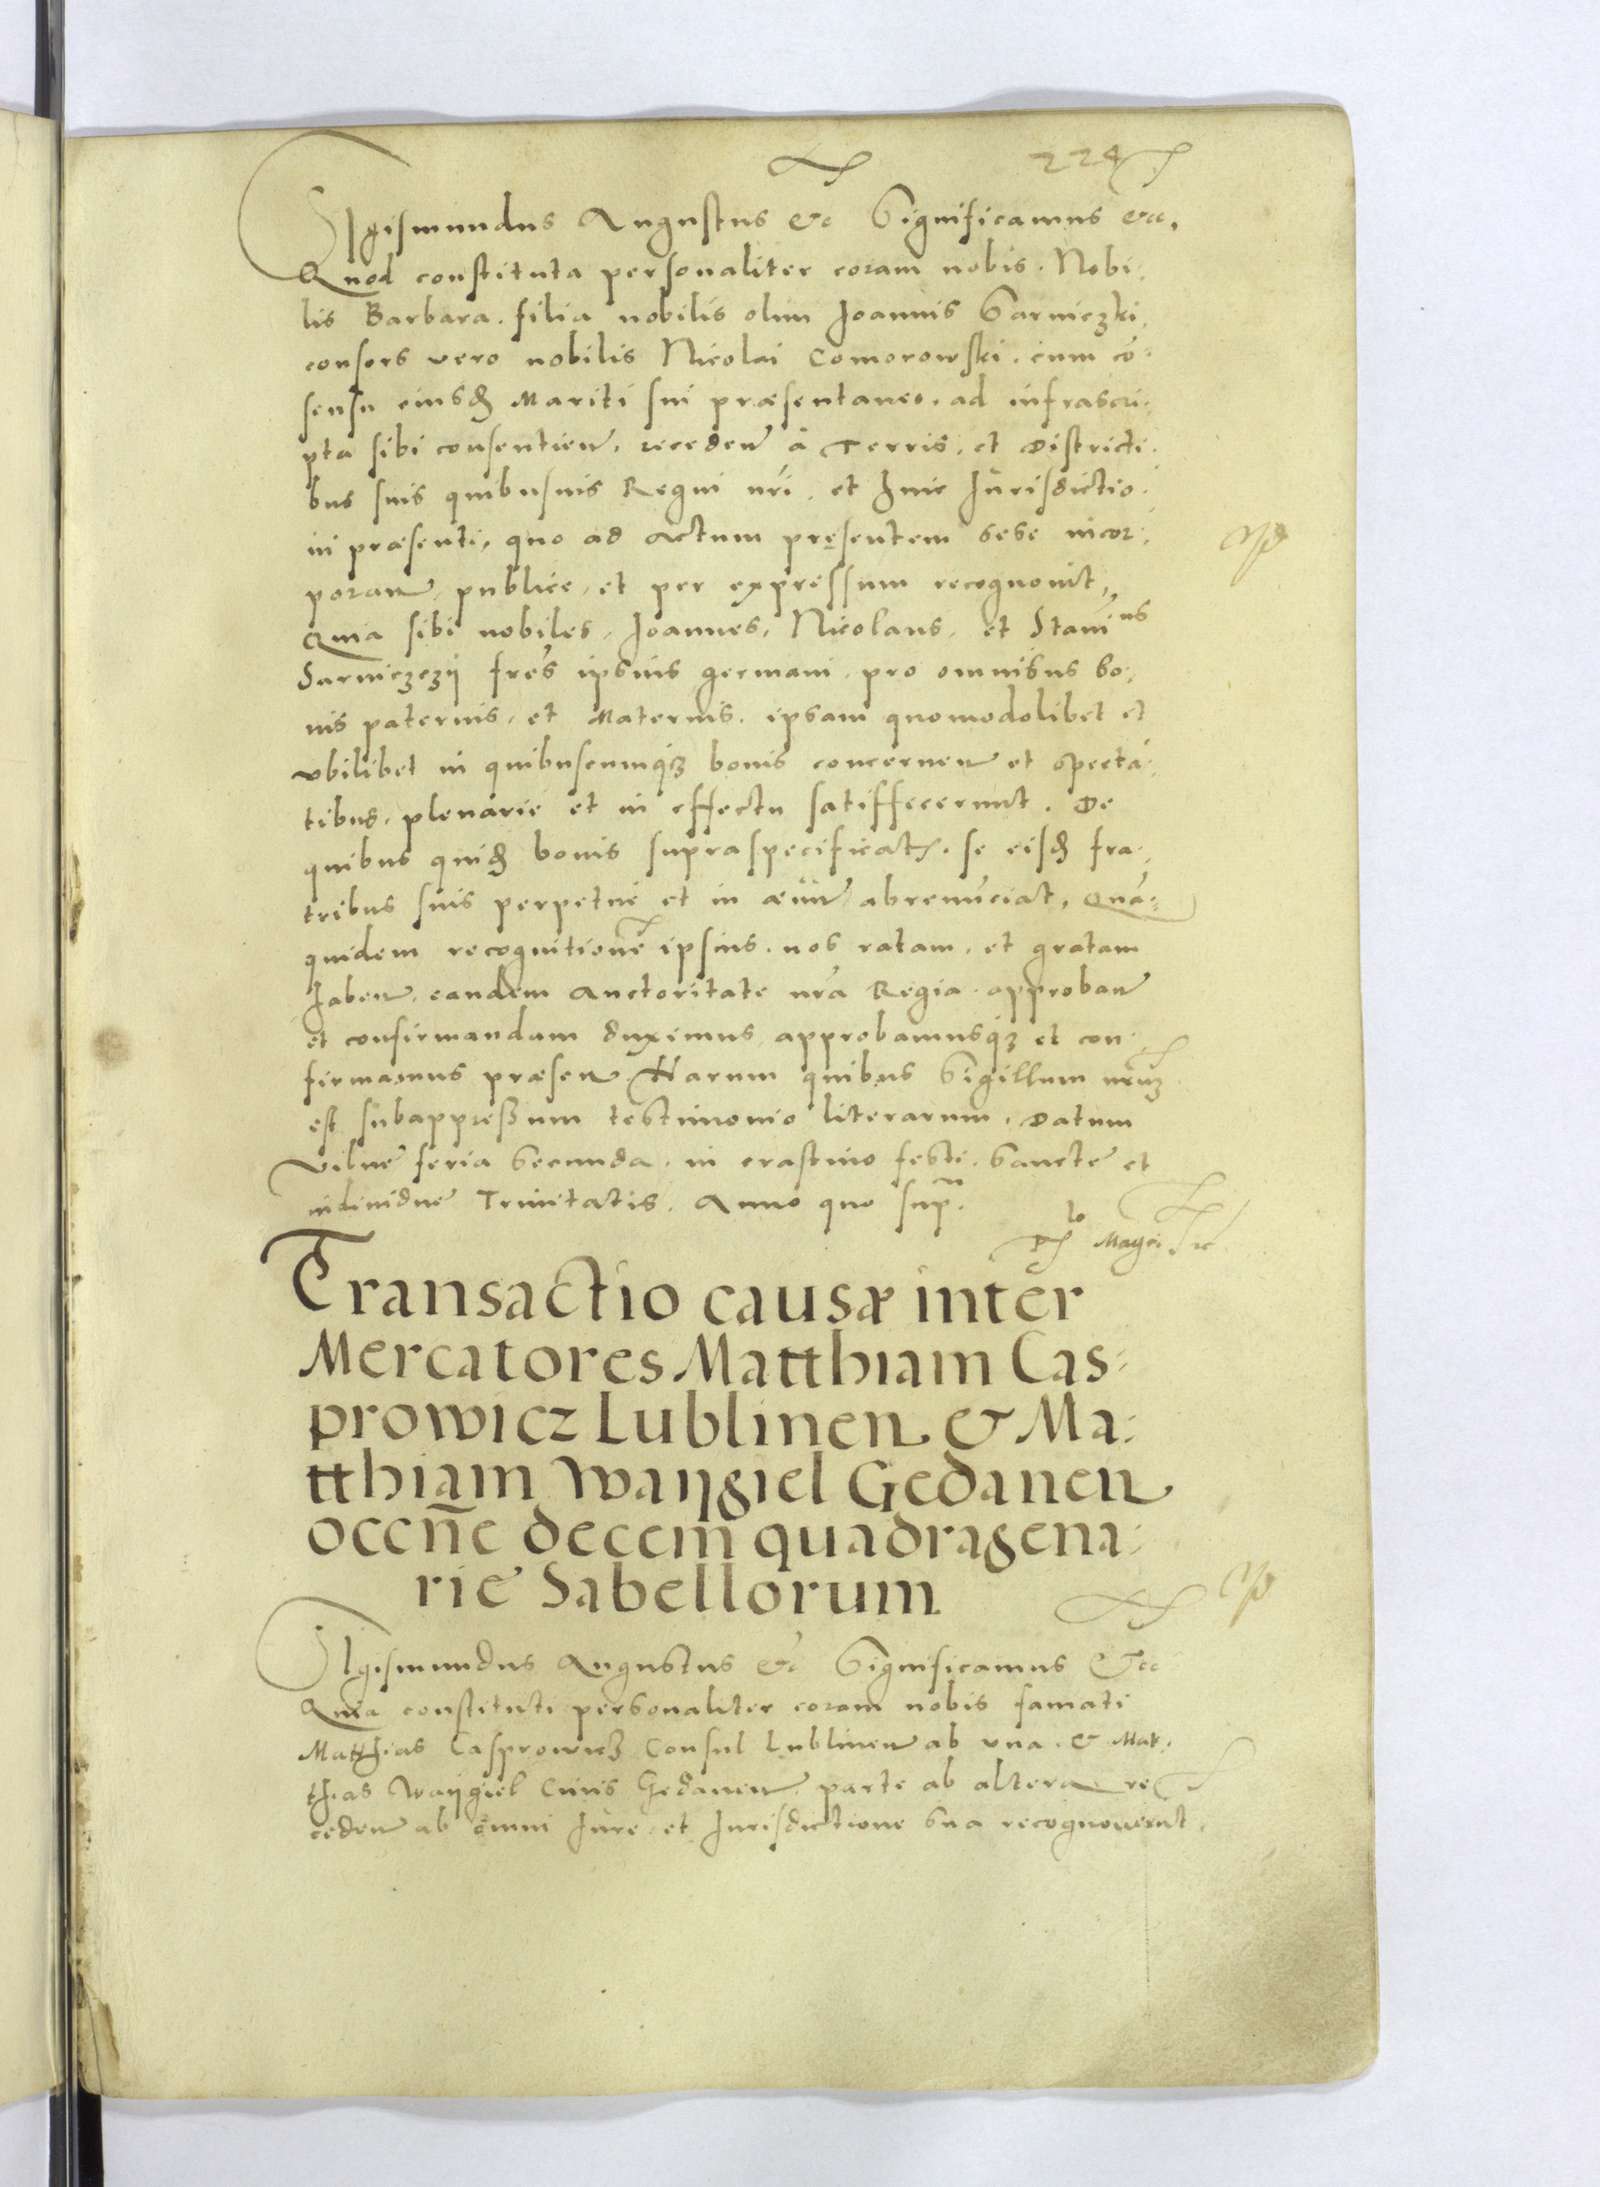 224
Sigismundus Augustus &c Significamus &cc.
Quod constituta personaliter coram nobis. Nobi:
lis Barbara. filia nobilis olim Joannis Sarniczki,
consors vero nobilis Nicolai Comorowski. cum cō:
sensu eiusđ Mariti sui præsentaneo. ad infrascri:
pta sibi consentien, receden à Terris, et Districti:
bus suis quibusuis Regni nrī, et huic Jurisdictio:
ni præsenti, quo ad actum pręsentem sese incor:
poran, publice, et per expressum recognouit,
Quia sibi nobiles, Joannes, Nicolaus, et Staniūs
Sarniczczij fres̄ ipsius germani, pro omnibus bo:
nis paternis, et Maternis, ipsam quomodolibet et
vbilibet in quibuscumq́ʒ bonis concernen et spectā:
tibus, plenarie et in effectu satiffecerunt. De
quibus quiđ bonis supraspecificatꝭ. se eisđ fra:
tribus suis perpetue et in æuum abrenūciat, Quā:
quidem recognitionē ipsius, nos ratam, et gratam
haben, eandem auctoritate nrā Regia approban
et confirmandam duximus, approbamusq́ʒ et con:
firmamus præsen. Harum quibus Sigillum nrūʒ
est subappressum testimonio literarum, Datum
Vilnę feria secunda, in crastino festi, Sanctę et
indiuiduę Trinitatis, Anno quo sup.
Mayei
Transactio causæ inter
Mercatores Matthiam Cas:
prowicz Lublinen & Ma:
tthiam Waygiel Gedanen
occne̅ decem quadragena:
rię Sabellorum
Sigismundus Augustus &c Significamus &cc
Quia constituti personaliter coram nobis famati
Matthias Casprowicz Consul Lublinen ab vna & Mat:
thias Waygiel Ciuis Gedanen parte ab altera re
ceden ab omni Jure et Jurisdictione sua recognouerunt,